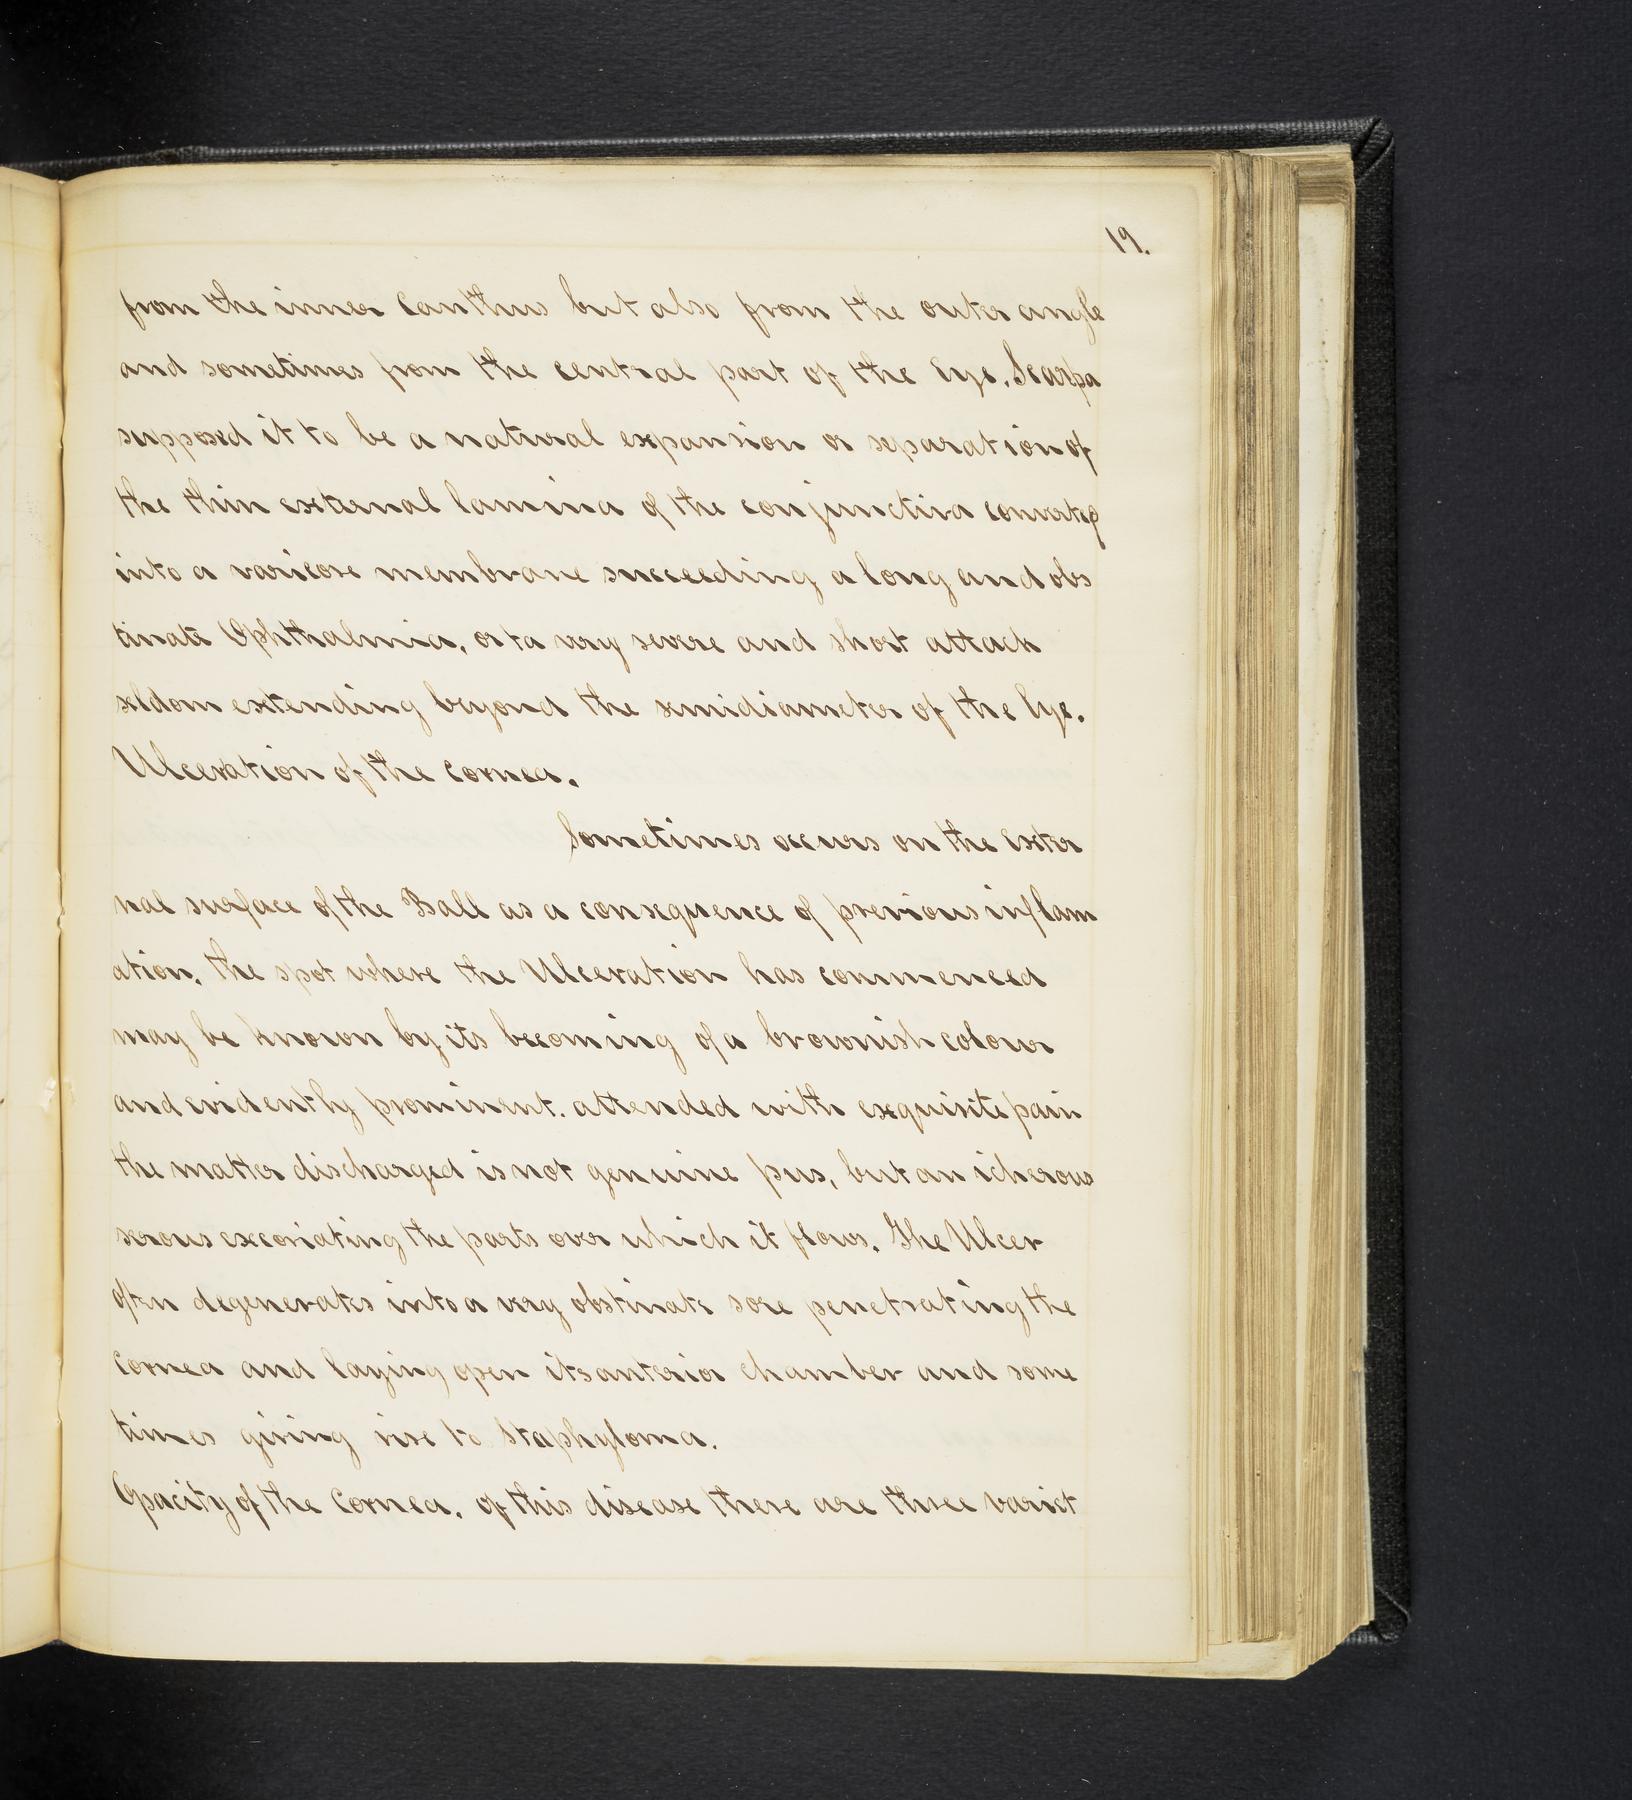 19.
from the inner Canthus but also from the outer angle
and sometimes from the central part of the Eye. Scarpa
supposed it to be a natural expansion or separation of
the thin external lamina of the conjunctiva converted
into a varicose membrane succeeding a long and obs
tinate Ophthalmia, or to a very severe and short attack
seldom extending beyond the semidiameter of the Eye.
Ulceration of the cornea.
Sometimes occurs on the exter
nal surface of the Ball as a consequence of previous inflam
ation. the spot where the Ulceration has commenced
may be known by its becoming of a brownish colour
and evidently prominent. attended with exquisite pain
the matter discharged is not genuine pus, but an icherous
serous excoriating the parts over which it flows. The Ulcer
often degenerates into a very obstinate sore penetrating the
cornea and laying open its anterior chamber and some
times giving rise to Staphyloma.
Opacity of the Cornea. of this disease there are three variet